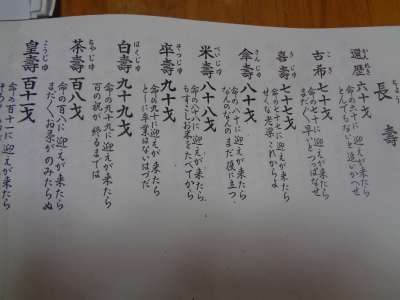 長寿
還暦 六十才
命の六十に迎えが来たら
とんでもないと追いかへせ
古希 七十才
命の七十に迎えが来たら
まだ〳〵早いとつっぱなせ
喜壽 七十七才
命の七七に迎えが来たら
せくな老楽これからよ
傘壽 八十才
命の八十に迎えが来たら
なんのなんのまだ役に立つ
米壽 八十八才
命の八八に迎えが来たら
もすこしお米をたべてから
卒壽 九十才
命の九十に迎えが来たら
としに卒業はないはづだ
白壽 九十九才
命の九十九に迎えが来たら
百の祝が終るまでは
茶壽 百八才
命の百八に迎えが来たら
まだ〳〵お茶がのみたらぬ
皇壽 百十一才
命の百十一に迎えが来たら